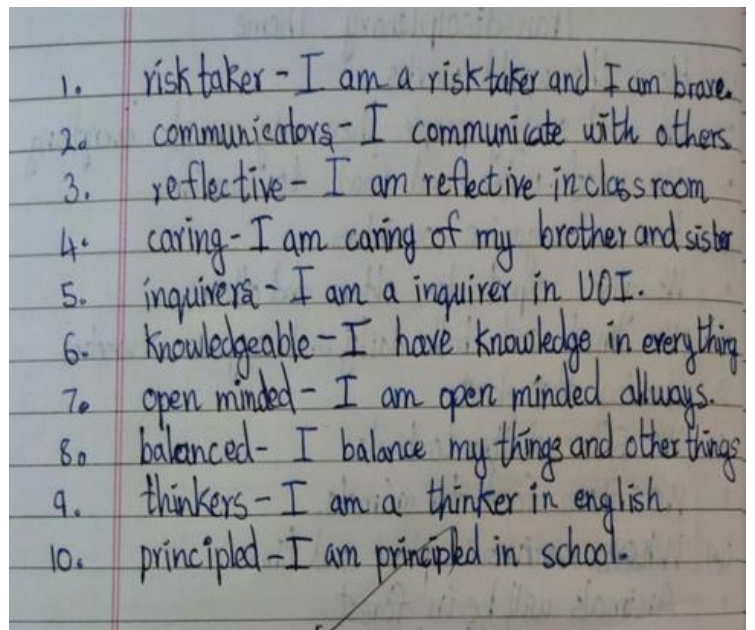 1. risk taker - I am a risk taker and I am brave.
2. communicators - I communicate with others
3. reflective - I am reflective in class room
4. caring - I am caring of my brother and sister
5. inquirers - I am a inquirer in UOI.
6. Knowledgeable - I have knowledge in everything
7. open minded - I am open minded allways.
8. balanced - I balance my things and other things
9. thinkers - I am a thinker in english
10. principled - I am principled in school.